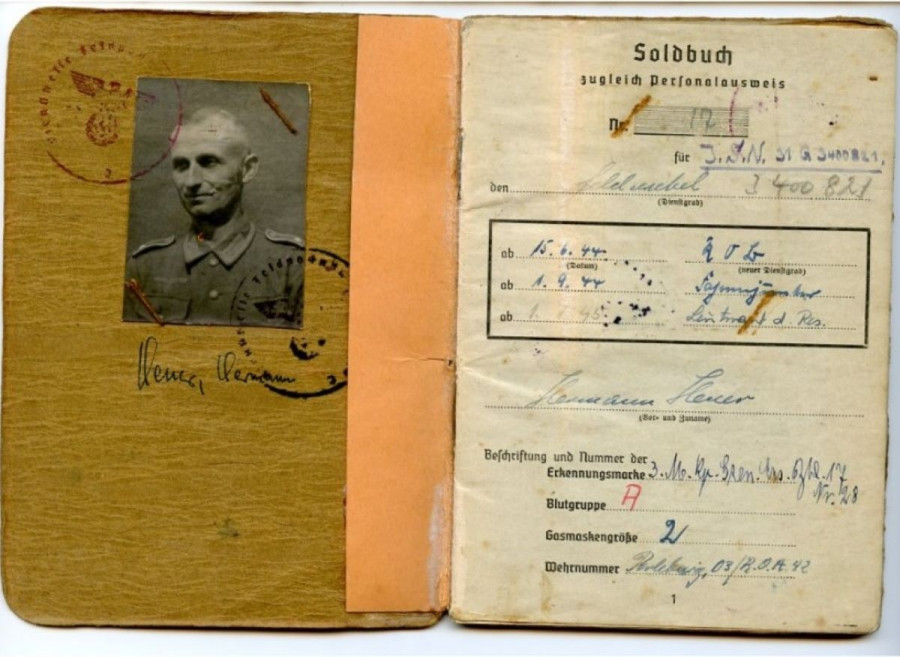 Dienststelle Feldpost
Hermann
Soldbuch
zugleich Personalausweis
Nr. 17
für I.S.N. 31 G 3400821.
den Feldwebel 3400821
(Dienstgrad)
ab 15.6.44 R O B
(Datum) (neuer Dienstgrad)
ab 1.9.44
ab 1. 45 Leutnant d. Res.
Hermann
(Vor- und Zuname)
Beschriftung und Nummer der
Erkennungsmarke 3. M. Kp. Gren. Ers. Btl. 17
Nr. 28
Blutgruppe A
Gasmaskengröße 2
Wehrnummer 03/ 42
1